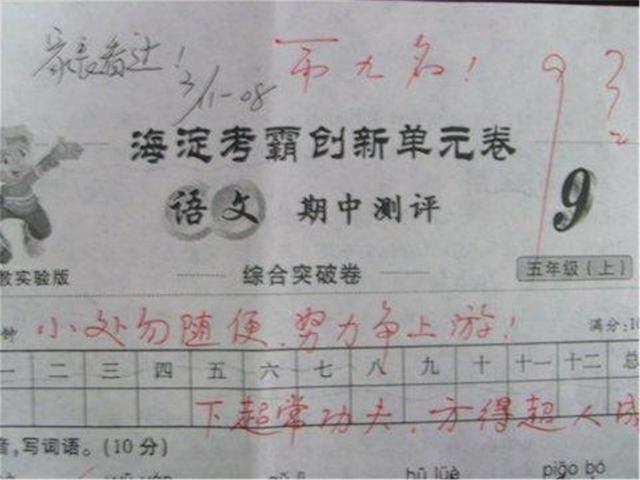 家长看过！
3/11-08
第九名！
93
海淀考霸创新单元卷
语文 期中测评
9
教实验版
综合突破卷
五年级（上）
钟 小处勿随便，努力争上游！ 满分：10
一 二 三 四 五 六 七 八 九 十 十一 十二 总
下超常功夫，方得超人成
音，写词语。（10分）
hū lüè piāo bó